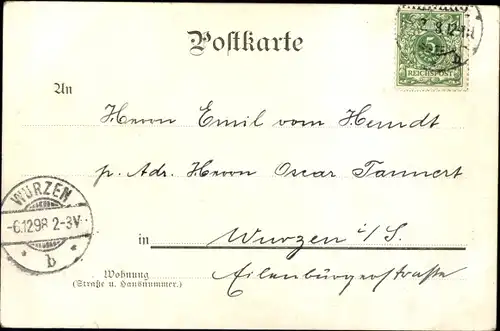 Postkarte
5
REICHSPOST
An
Herrn Emil vom
p. Adr. Herrn Oscar Tannert
WURZEN
-6.12.98 2-3V.
b
in Wurzen i/S.
Wohnung
(Straße u. Hausnummer.)
Eilenburgerstraße